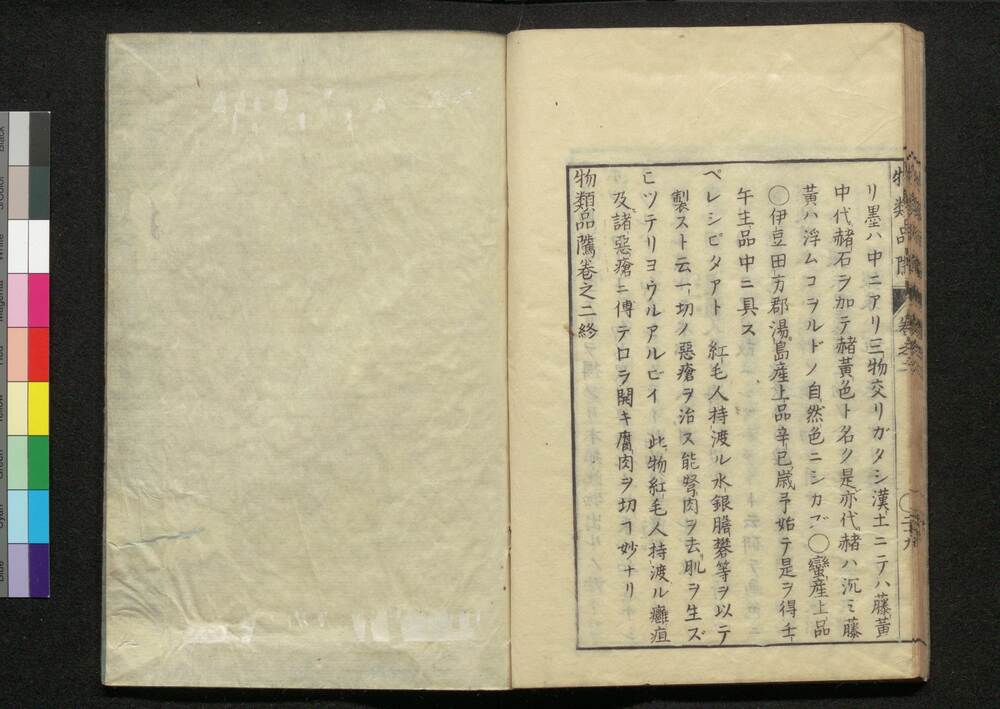 リ墨ハ中ニアリ三物交リガタシ漢土ニテハ藤黃
中代赭石ヲ加テ赭黃色ト名ク是亦代赭ハ沉ミ藤
黃ハ浮ムコヲルドノ自然色ニシカズ○蠻產上品
○伊豆田方郡湯島產上品辛巳歳予始テ是ヲ得壬
午主品中ニ具ス
ペレシピタアト 紅毛人持渡ル水銀膽礬等ヲ以テ
製スト云一切ノ惡瘡ヲ治ス能弩肉ヲ去肌ヲ生ズ
ヒツテリヨウルアルビイ 此物紅毛人持渡ル癰疽
及諸惡瘡ニ傅テロヲ開キ腐肉ヲ切ヿ妙ナリ
物類品隲卷之二終
物類品隲